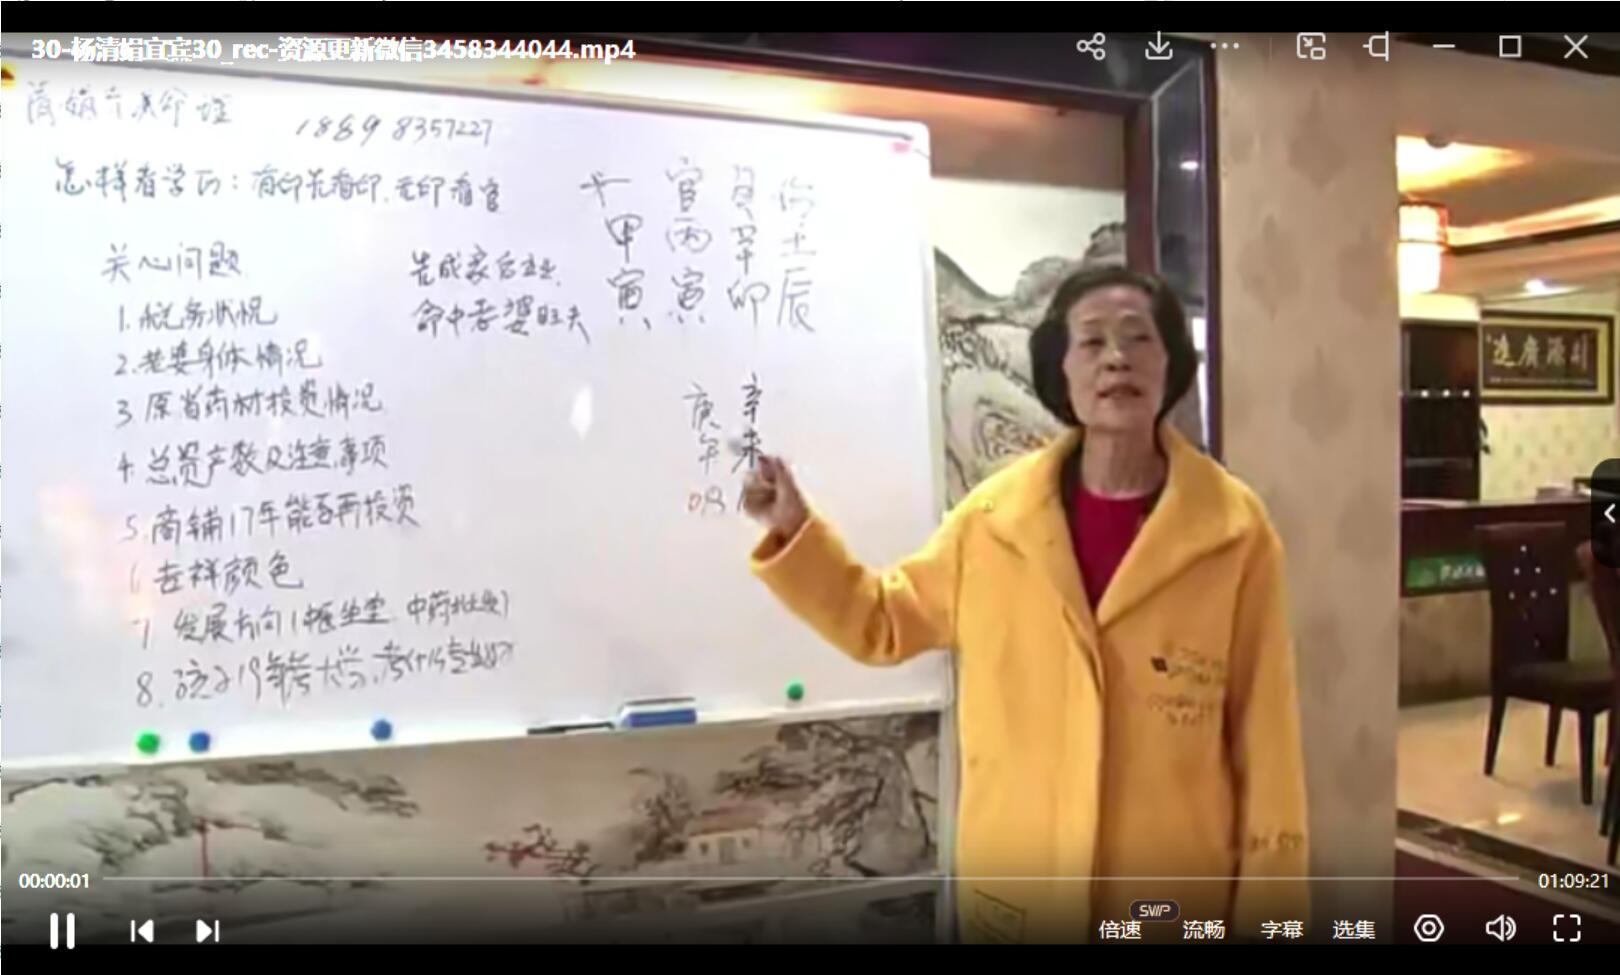 30-杨清娟宜宾30_rec-资源更新微信3458344044.mp4
清娟六爻命理
18898357227
怎样看学历：有印先看印.无印看官
关心问题
1.税务状况
2.老婆身体情况
3 原省药材投资情况
4.总资产数及注意事项
5.商铺17年能否再投资
6 吉祥颜色
7 发展方向(中医坐堂.中药批发)
8.孩子19年考大学,考什么专业好
先成家后立业.
命中老婆旺夫
官
甲 丙 辛 壬
寅 寅 卯 辰
庚 辛
午 未
00:00:01
01:09:21
SVIP
倍速 流畅 字幕 选集